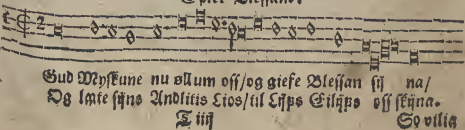 Gud Myſkune nu øllum oſſ/og giefe Bleſſan ſij na/
Og læte ſijns Andlitis Lios/til Lijfs Eilijfs oſſ ſkijna.
T iiij So vilia